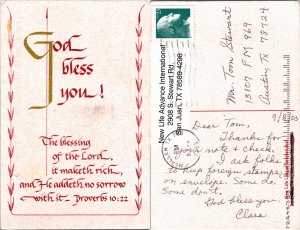 God
bless
you!
The blessing
of the Lord,
it maketh rich,
and He addeth no sorrow
with it. Proverbs 10:22
New Life Advance International
2908 S. Stewart Rd.
San Juan, TX 78589-4298
Mr. Tom Stewart
13107 FM 969
Austin, TX 78724
Dear Tom,
Thanks for
your note & check.
I ask folks
to keep foreign stamps
on envelope. Some do,
Some don't.
God bless you.
Clara